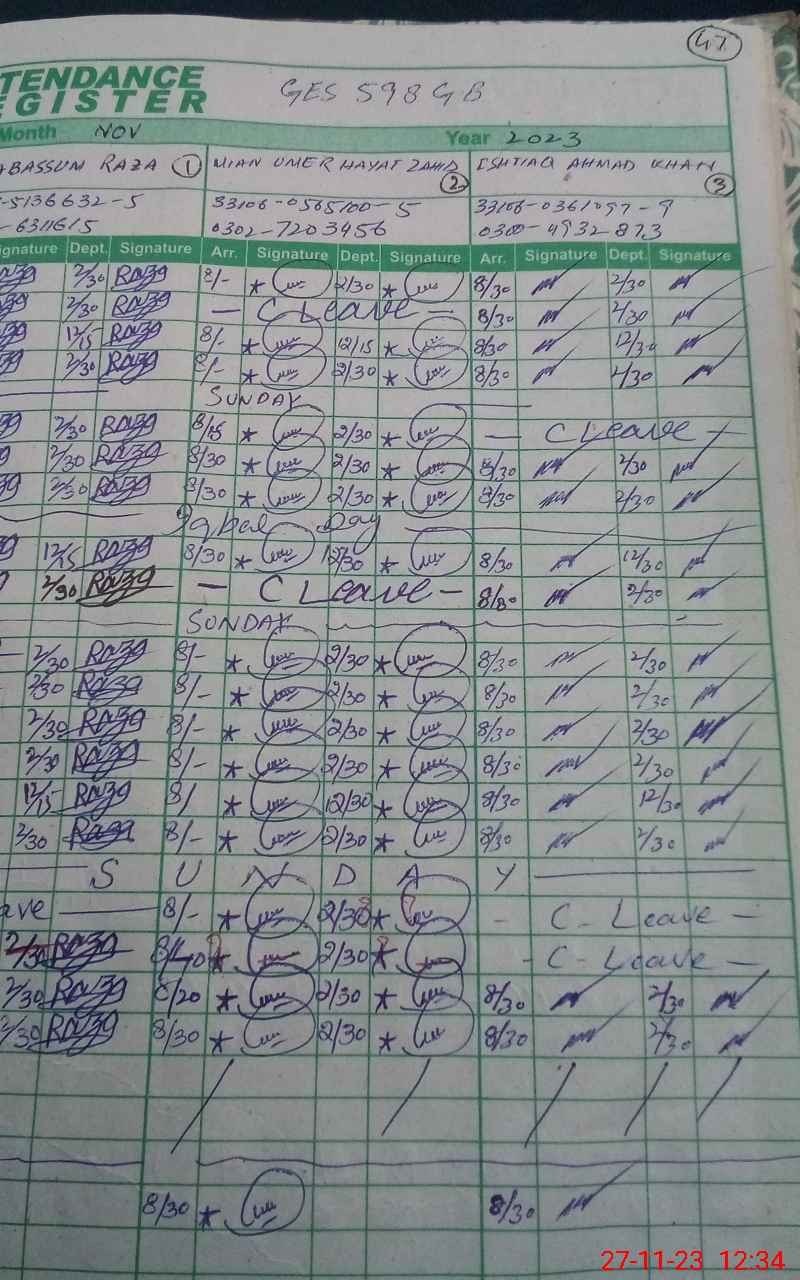 47
TENDANCE
EGISTER
GES 598 GB
Month NOV Year 2023
ABASSUM RAZA 1 MIAN UMER HAYAT ZAHID 2 ISHTIAQ AHMAD KHAN 3
-5136632-5 33106-0565100-5 33106-0361097-9
-6311615 0302-7203456 0300-4932873
ignature Dept. Signature Arr. Signature Dept. Signature Arr. Signature Dept. Signature
2/30 Raza 8/- 2/30 8/30 2/30
2/30 Raza - C Leave - 8/30 2/30
12/15 Raza 8/- 12/15 8/30 12/30
2/30 Raza 8/- 2/30 8/30 2/30
SUNDAY
2/30 Raza 8/15 2/30 - C Leave -
2/30 Raza 8/30 2/30 8/30 2/30
2/30 Raza 8/30 2/30 8/30 2/30
Iqbal Day
12/15 Raza 8/30 8/30 12/30
2/30 Raza - C Leave - 8/30 2/30
SUNDAY
2/30 Raza 8/- 2/30 8/30 2/30
2/30 Raza 8/- 2/30 8/30 2/30
2/30 Raza 8/- 2/30 8/30 2/30
2/30 Raza 8/- 2/30 8/30 2/30
12/15 Raza 8/ 12/30 8/30 12/30
2/30 Raza 8/- 2/30 8/30 2/30
S U N D A Y
ave 8/- 2/30 - C - Leave -
2/30 Raza 8/40 2/30 - C - Leave -
2/30 Raza 8/20 2/30 8/30 2/30
2/30 Raza 8/30 2/30 8/30 2/30
8/30 8/30
27-11-23 12:34